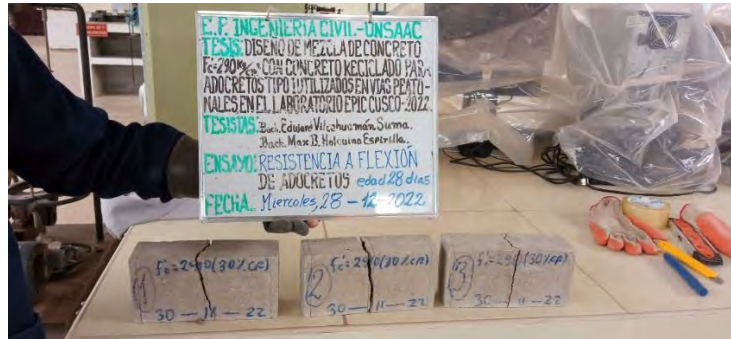 E.P. INGENIERIA CIVIL-UNSAAC
TESIS: DISEÑO DE MEZCLA DE CONCRETO
F'c=290 Kg/cm² CON CONCRETO RECICLADO PARA
ADOCRETOS TIPO I UTILIZADOS EN VIAS PEATO-
NALES EN EL LABORATORIO EPIC CUSCO-2022.
TESISTAS: Bach. Eduard Vilcahuamán Suma.
Bach. Max B. Holguino Espirilla.
ENSAYO: RESISTENCIA A FLEXIÓN
DE ADOCRETOS edad 28 dias
FECHA: Miercoles, 28-12-2022
1 f'c=290(30%CR)
30-11-22
2 f'c=290(30%CR)
30-11-22
3 f'c=290(30%CR)
30-11-22